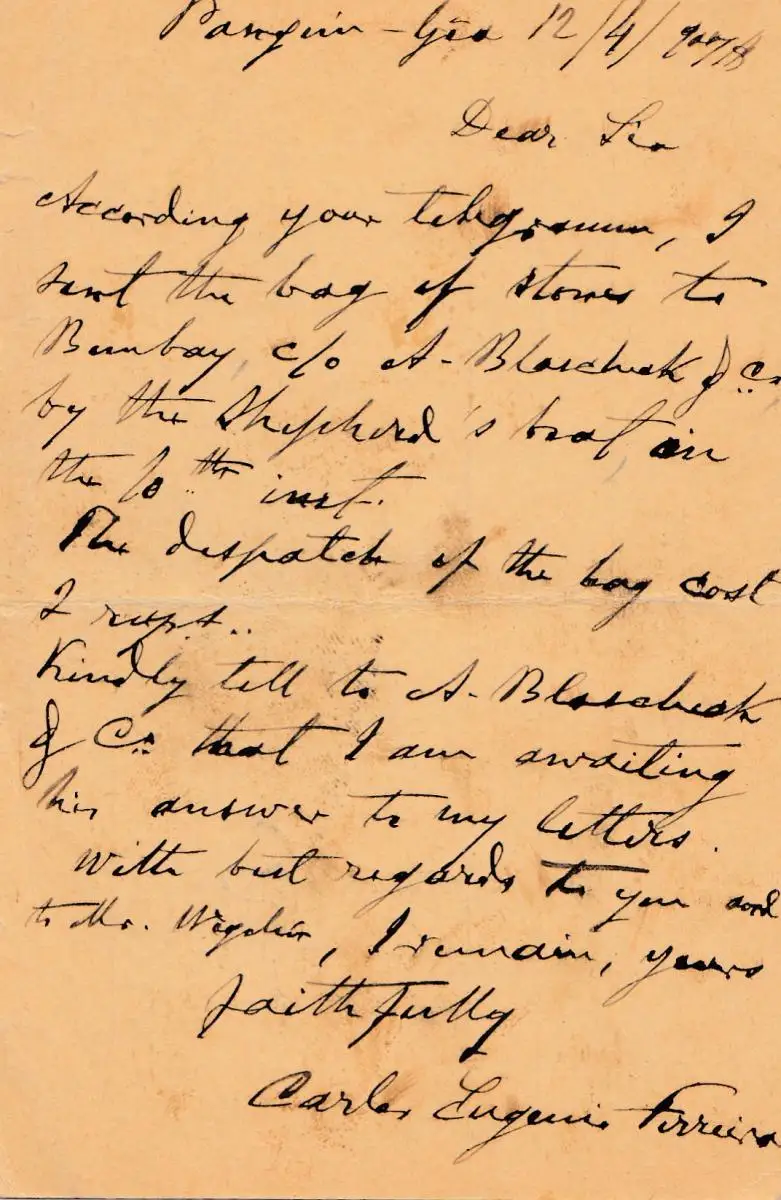 Pangim - Gôa 12/4/
Dear Sir
According your telegramm, I
sent the bag of stones to
Bombay, c/o A. Blascheck & Co.
by the Shepherd's boat, on
the 10th inst.
The dispatch of the bag cost
2 rups..
Kindly tell to A. Blascheck
& Co. that I am awaiting
his answer to my letters.
With best regards to you and
to Mr. , I remain, yours
faithfully
Carlos Eugenio Ferreira